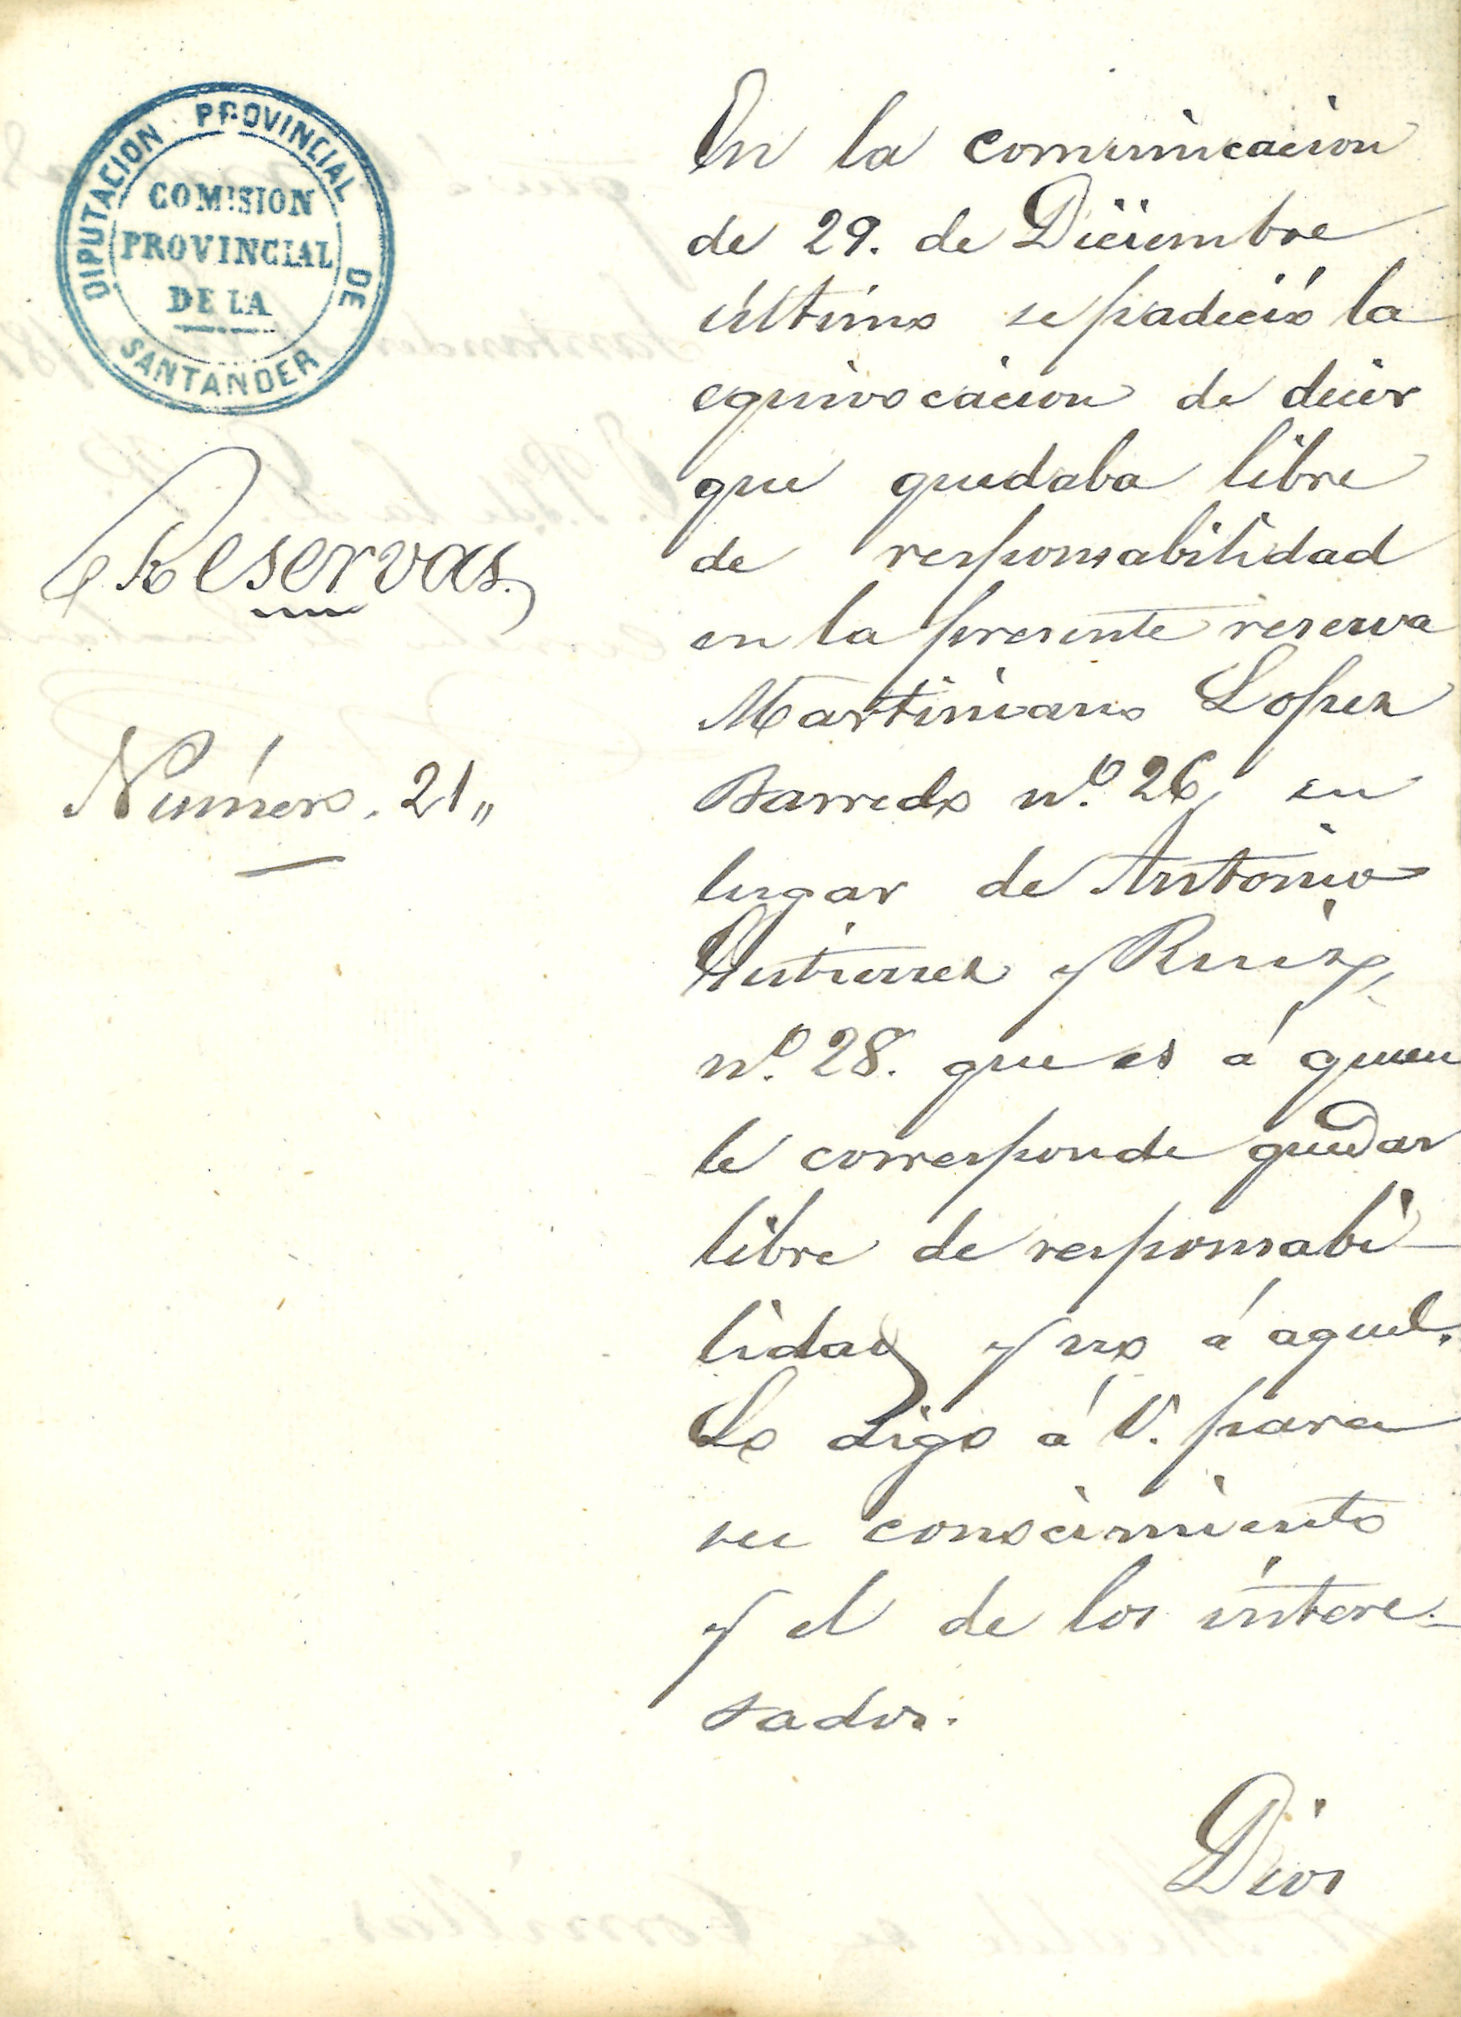 DIPUTACION PROVINCIAL DE SANTANDER
COMISION
PROVINCIAL
DE LA
Reservas.
Número. 21,,
En la comunicacion
de 29. de Diciembre
último se padeció la
equivocacion de decir
que quedaba libre
de responsabilidad
en la presente reserva
Martiniano Lopez
Barredo nº. 26, en
lugar de Antonio
Gutierrez y Ruiz,
nº. 28. que es á quien
le corresponde quedar
libre de responsabi-
lidad y no á aquel.
Lo digo á V. para
su conocimiento
y el de los intere-
sados.
Dios